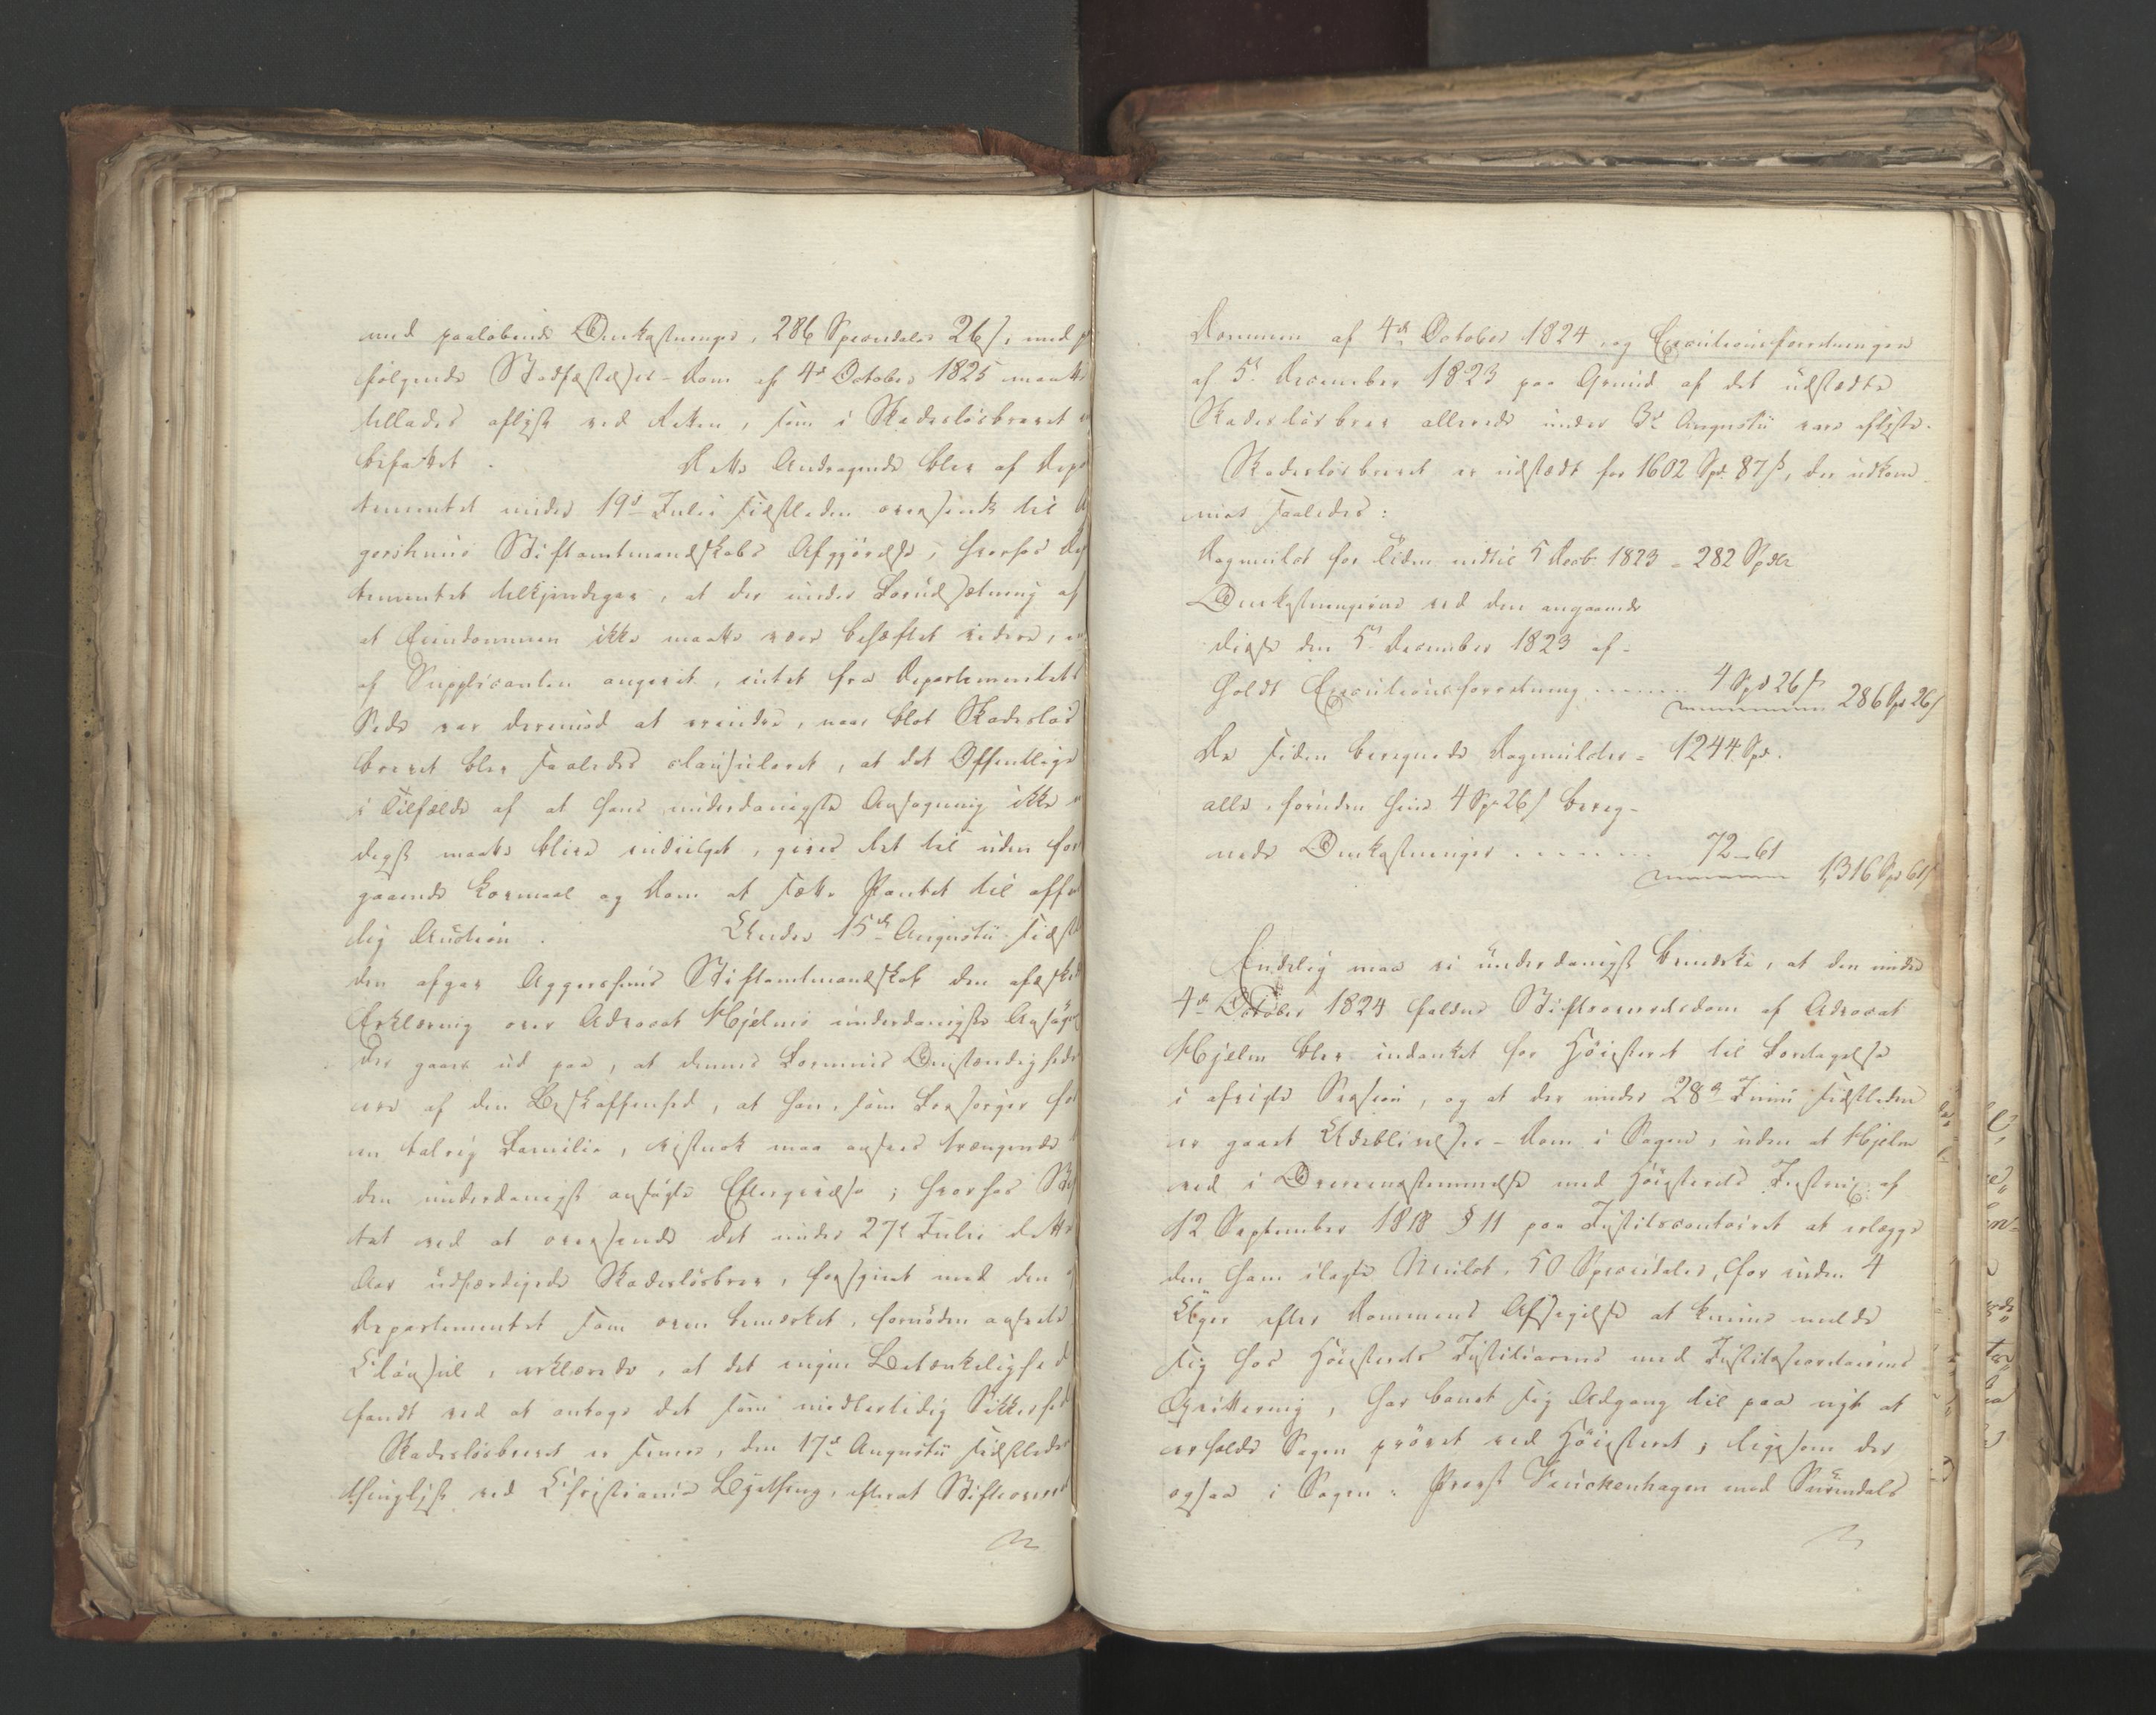 med paaløbende Omkostninger, 286 Speciedaler 26 ß, med
følgende Stadfæstelses-Dom af 4de October 1825 maatte
tillades aflyst ved Retten, som i Skadesløsbrevet
befalet. Dette Andragende blev af Depar
tementet under 19de Julii sidstleden oversendt til Ag
gershuus Stiftamtmandskabs Afgjørelse, hvorhos De
tementet tilkjendegav, at der under Forudsætning af
at Eiendommen ikke maatte være behæftet videre, en
af Supplicanten angivet, intet fra Departementets
Side var derimod at erindre, naar blot Skadesløs
brevet blev saaledes clausuleret, at det Offentlige
i Tilfælde af at hans underdanigste Ansøgning ikke
digst maatte blive indvilget, gives Ret til uden for
gaaende Lovmaal og Dom at sætte Pantet til offe
lig Auction. Under 15de Augusti sidst
den afgav Aggershuus Stiftamtmandskab den afæsked
Erklæring over Advocat Hjelms underdanigste Ansøgn
der gaaer ud paa, at dennes Formues Omstændighede
ere af den Beskaffenhed, at han, som Forsørger for
en talrig Familie, vistnok maa ansees trængende
den underdanigst ansøgte Eftergivelse; hvorhos
tet ved at oversende det under 27de Julii dette
Aar udfærdigede Skadesløsbrev, forsynet med den
Departementet som oven bemærket, fornøden ansete
Clausul, erklærede, at det ingen Betænkelighed
fandt ved at antage det som midlertidig Sikkerhed
Skadesløsbrevet er senere, den 17de Augusti sidstleden
thinglyst ved Christiania Byething, efterat Stiftsoverret
Dommen af 4de October 1824 og Executionsforretningen
af 5te December 1823 paa Grund af det udstædte
Skadesløsbrev allerede under 3de Augusti vare aflyste.
Skadesløsbrevet er udstædt for 1602 Spd. 87 ß, der udkom
mer saaledes:
Dagmulct for Tiden indtil 5 Decbr. 1823 = 282 Spdlr
Omkostningerne ved den angaaende
disse den 5te December 1823 af-
holdt Executionsforretning ....... 4 Spd 26 ß 286 Spd 26 ß
De siden beregnede Dagmulcter = 1244 Spd.
alle, foruden hine 4 Spd 26 ß bereg-
nede Omkostninger ....... 72 – 61 1,316 Spd 61 ß
Endelig maa vi underdanigst bemærke, at den under
4de October 1824 faldne Stiftsoverretsdom af Advocat
Hjelm blev indanket for Høiesteret til Foretagelse
i afvigte Session, og at der under 28de Junii sidstleden
er gaaet Udeblivelses-Dom i Sagen, uden at Hjelm
ved i Overeensstemmelse med Høiesterets Instrux af
12 September 1818 § 11 paa Justitscontoiret at erlægge
den ham ilagte Mulct, 50 Speciedaler, for inden 4
Uger efter Dommens Afsigelse at kunne melde
sig hos Høiesterets Justitiarius med Justitssecretairens
Qvittering, har banet sig Adgang til paa nyt at
erholde Sagen prøvet ved Høiesteret; ligesom der
ogsaa i Sagen: Provst Finckenhagen mod Surendals